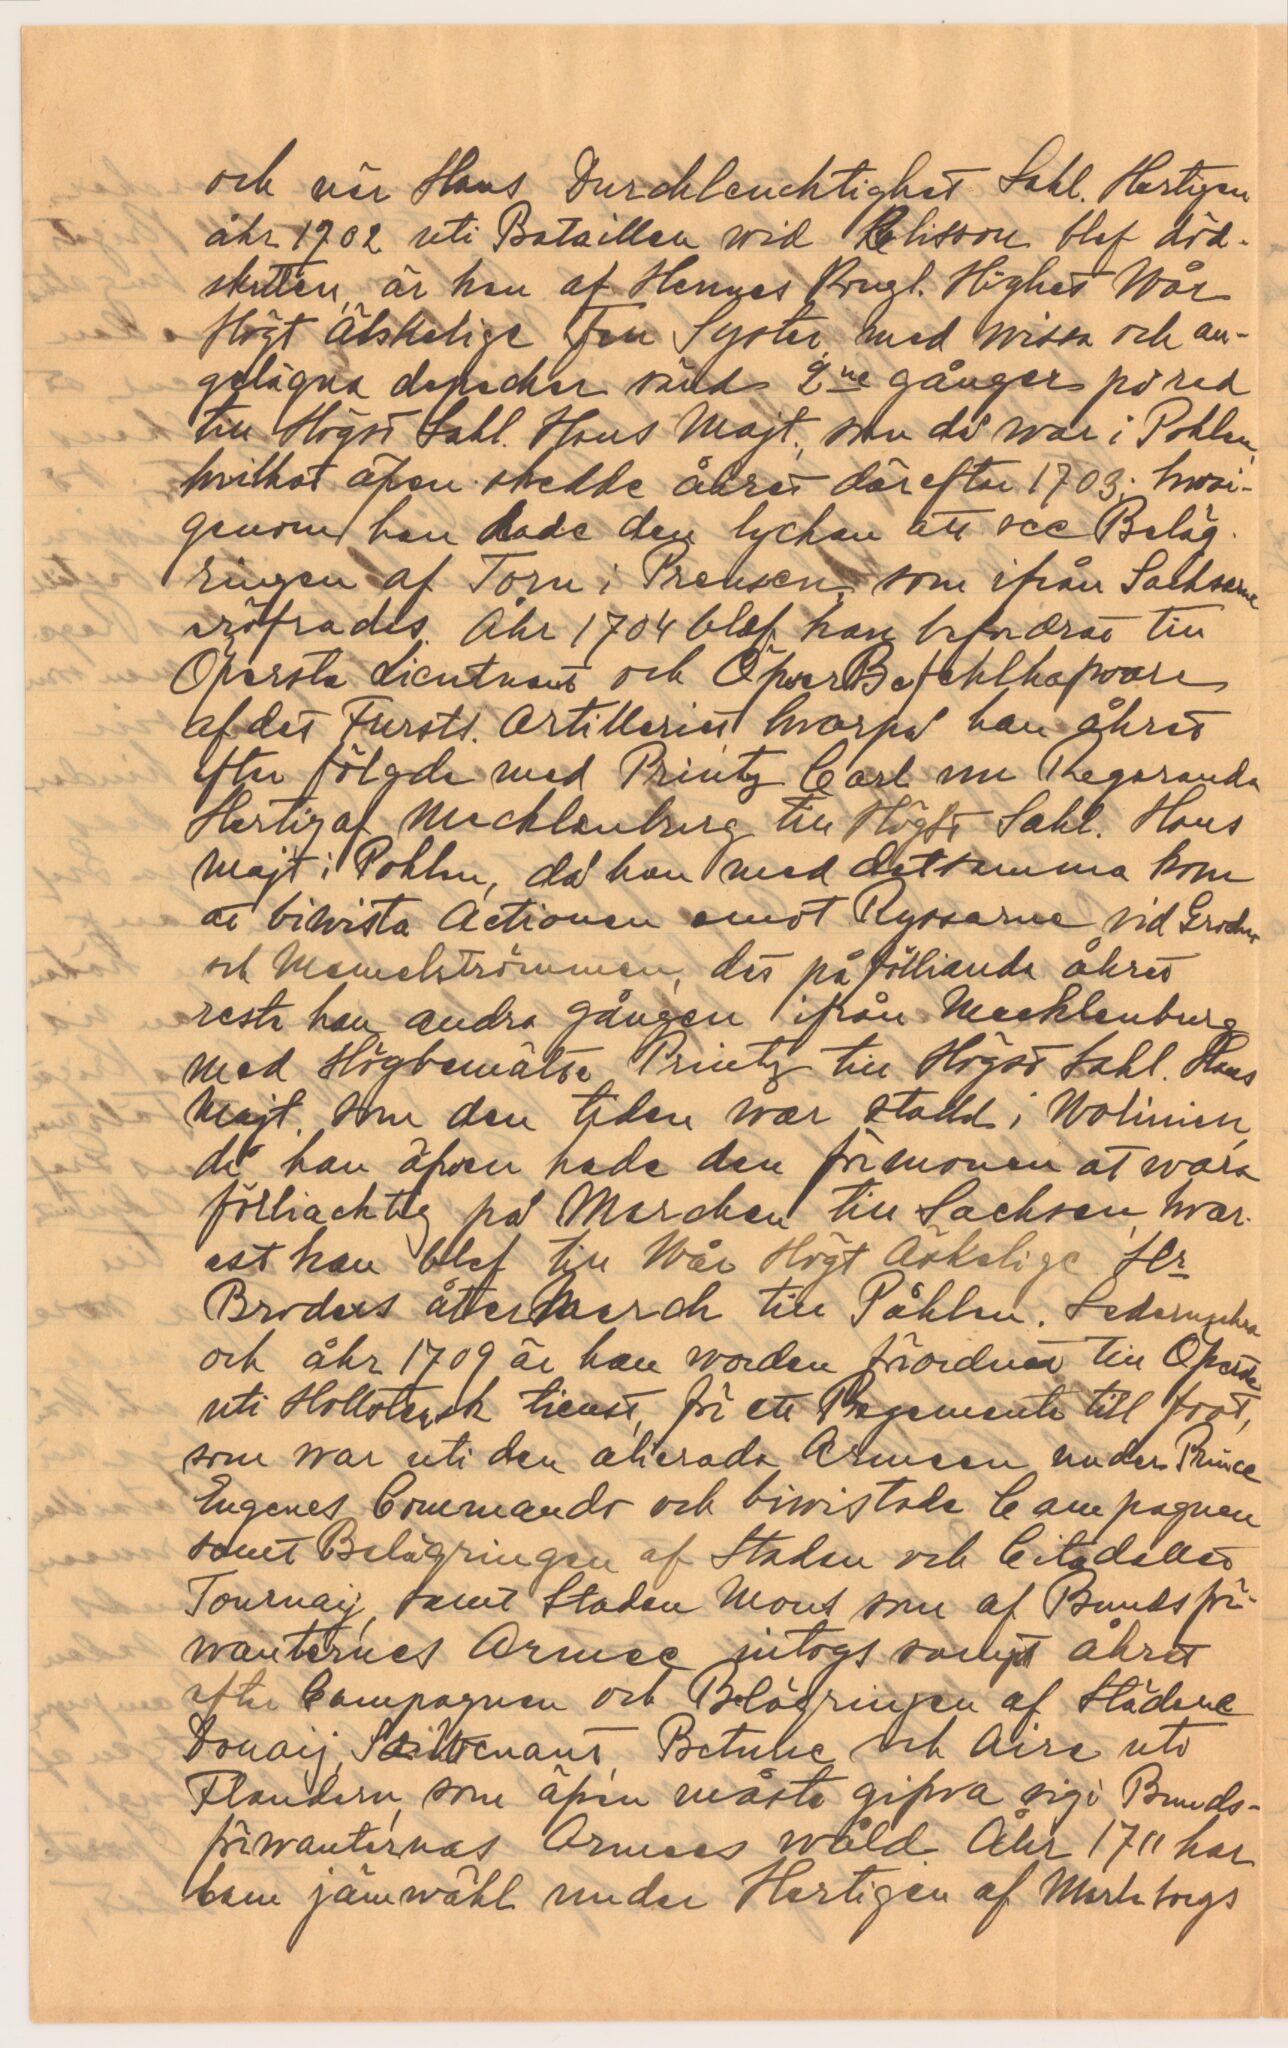 och när Hans Durchleuchtighet Sahl. Hertigen
åhr 1702 uti Bataillen wid Clisson blef död-
skuten, är han af Hennes Kongl. Highet Wår
Högt Älskelige Fru Syster med wissa och an-
gelägna depecher sänd 2ne gånger på red
till Högst Sahl. Hans Majt, som då war i Pohlen,
hvilket äfven skedde åhret därefter 1703; hwari-
genom han hade den lyckan att see Beläg-
ringen af Torn i Preusen, som ifrån Sachsarne
eröfrades. Åhr 1704 blef han befordrat till
Öfwersta Lieutnant och ÖfwerBefehlhafware
af det Furstl. Artilleriet, hvarpå han åhret
efter fölgde med Printz Carl nu Regerande
Hertig af Mecklenburg till Högst Sahl. Hans
Majt i Pohlen, då han med detsamma kom
at biwista Actionen emot Ryssarne vid Grodno
och Memelströmmen, det påfölliande åhret
reste han andra gången ifrån Mecklenburg
med Högbemälte Printz till Högst Sahl. Hans
Majt. som den tiden war stadd i Wolinien,
då han äfwen hade den förmonen at wara
fölliachtig på Marchen till Sachsen, hwar-
est han blef till Wår Högt Äskelige Hr
Broders åter March till Påhlen. Sedermehra
och åhr 1709 är han worden förordnat till Öfverste
uti Hollstensk tienst, för ett Regemente till foot,
som war uti den alierade Armeen under Prince
Eugenes Commando och biwistade Campagnen
samt Belägringen af Staden och Citadellet
Tournaij, samt Staden Mons som af Bundsför-
wanternes Armee intogs sampt åhret
efter Campagnen och Belägringen af Städerne
Douaij, Betune och Aire uti
Flandern, som äfven måste gifva sig i Bunds-
förwanternas Armees wåld. Åhr 1711 har
han jämwähl under Hertigen af Marleborgs